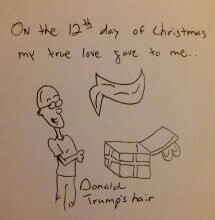 On the 12th day of Christmas
my true love gave to me...
Donald
Trump's hair